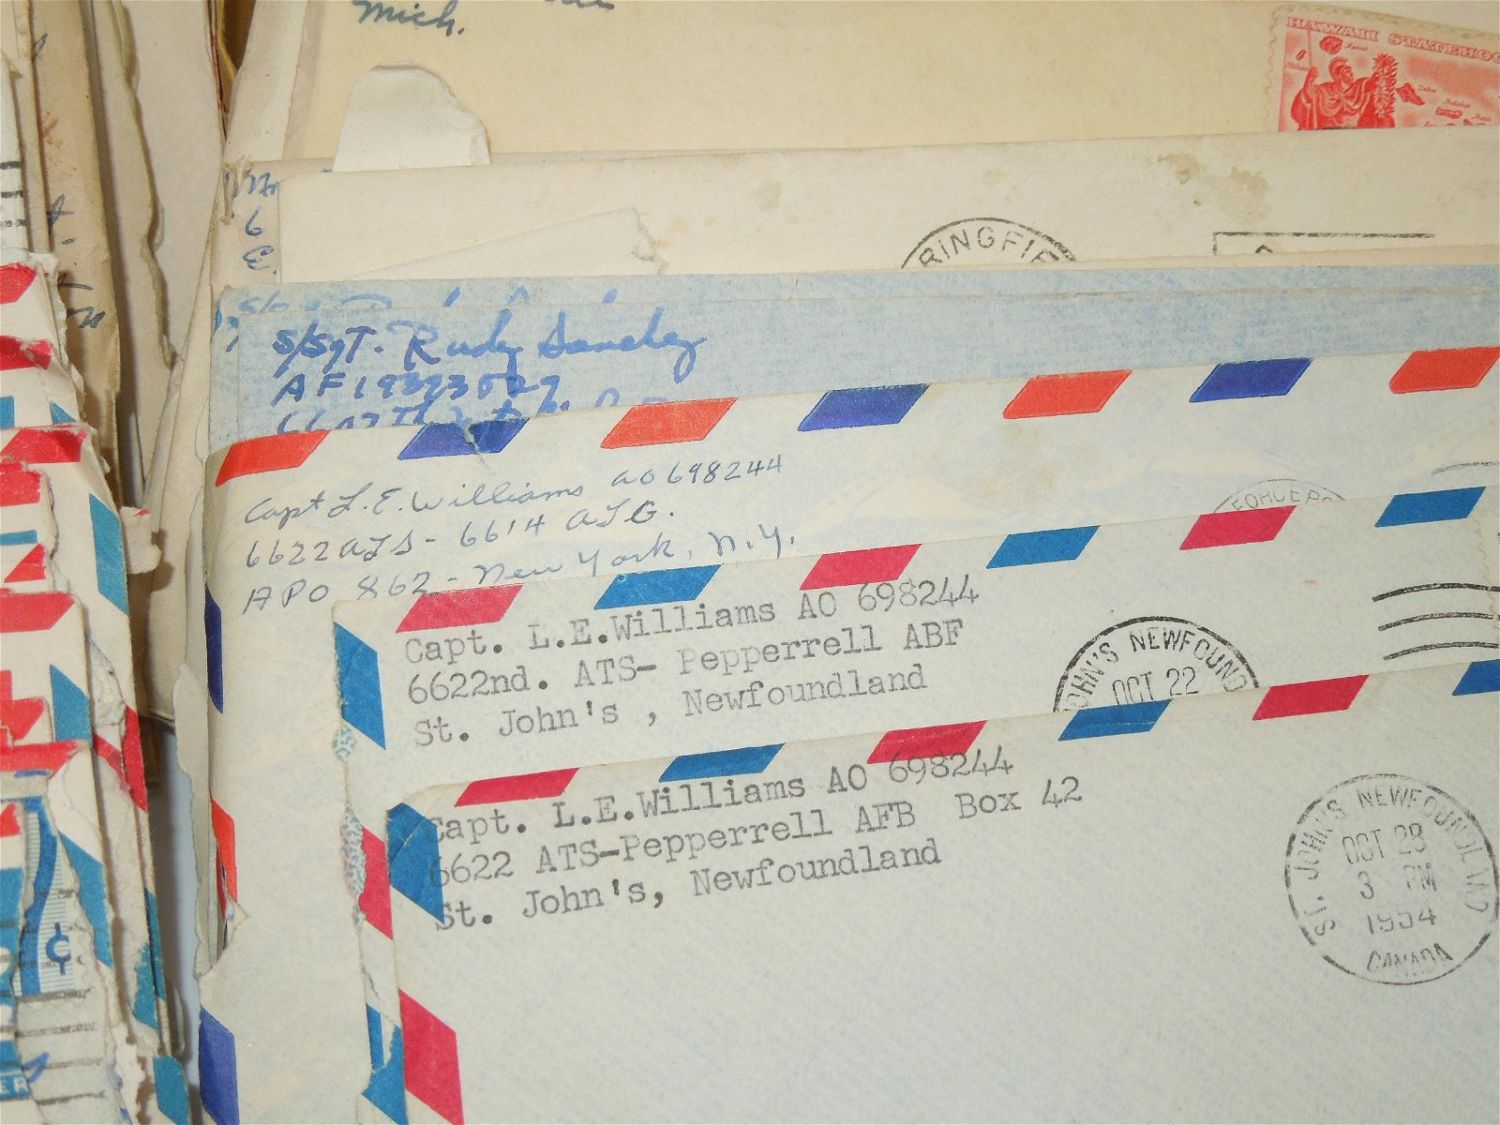 Mich.
HAWAII
RINGFI
6
E.
S/Sgt. Rudy Sanchez
AF19393529
Capt L.E. Williams AO698244
6622 ATS - 6614 ATG.
APO 862 - New York, N.Y.
Capt. L.E.Williams AO 698244
6622nd. ATS- Pepperrell ABF
St. John's , Newfoundland
OHN'S NEWFOUND
OCT 22
Capt. L.E.Williams AO 698244
6622 ATS-Pepperrell AFB Box 42
St. John's, Newfoundland
ST. JOHN'S NEWFOUNDLAND
OCT 28
3 PM
1954
CANADA
¢